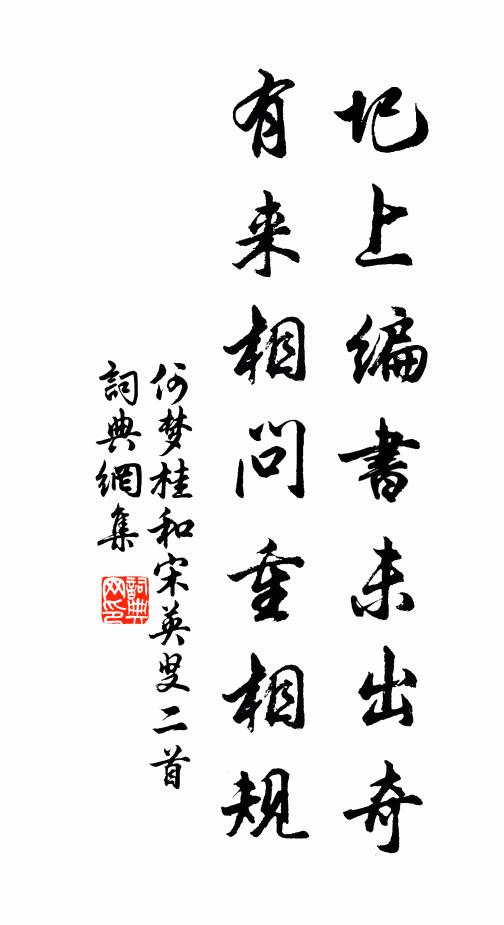 圯上编書未出奇
有来相问重相规
何梦桂和宋英叟二首
詞典網集
詞典網印